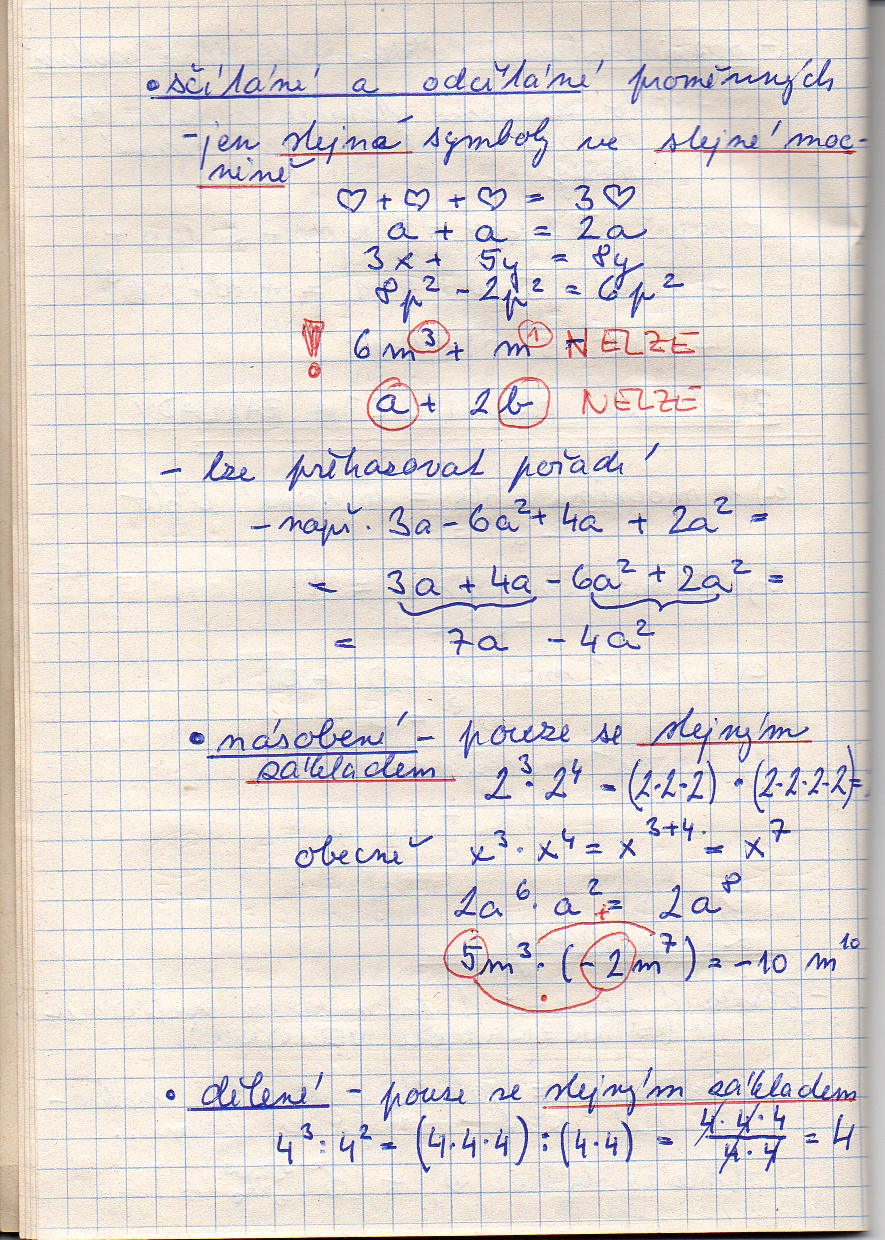 • sčítání a odčítání proměnných
- jen stejná symboly ve stejné moc-
nině
♡ + ♡ + ♡ = 3♡
a + a = 2a
3x + 5y = 8y
8p² - 2p² = 6p²
! 6m³ + m¹ NELZE
a + 2b NELZE
- lze přehazovat pořadí
- např. 3a - 6a² + 4a + 2a² =
= 3a + 4a - 6a² + 2a² =
= 7a - 4a²
• násobení - pouze se stejným
základem
2³ · 2⁴ = (2·2·2) · (2·2·2·2) =
obecně x³ · x⁴ = x³⁺⁴ = x⁷
2a⁶ · a² = 2a⁸
+
5m³ · (-2m⁷) = -10 m¹⁰
·
• dělení - pouze se stejným základem
4³ : 4² = (4·4·4) : (4·4) = 4·4·4 / 4·4 = 4